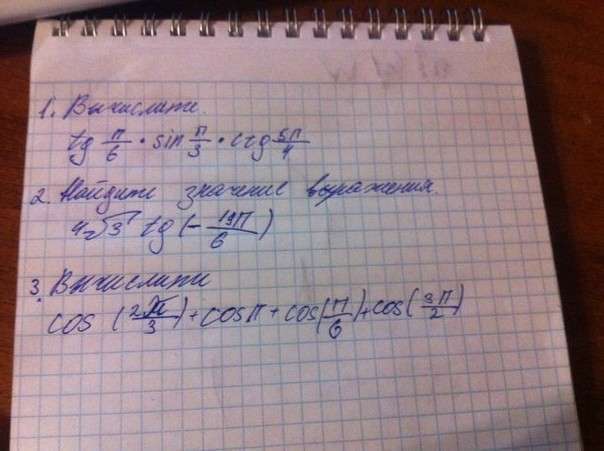 1. Вычислите.
tg π/6 · sin π/3 · ctg 5π/4
2. Найдите значение выражения.
4√3 tg (-19π/6)
3. Вычислити
cos (2π/3) + cos π + cos(π/6) + cos(3π/2)